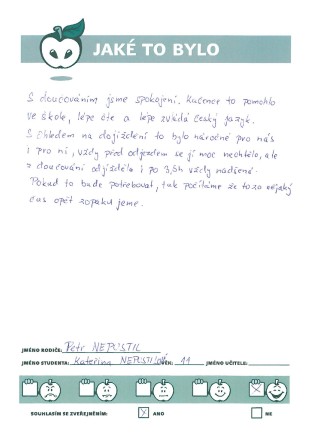 JAKÉ TO BYLO
S doučováním jsme spokojeni. Kačence to pomohlo
ve škole, lépe čte a lépe zvládá český jazyk.
S ohledem na dojíždění to bylo náročné pro nás
i pro ni, vždy před odjezdem se jí moc nechtělo, ale
z doučování odjížděla i po 3,5h vždy nadšená.
Pokud to bude potřebovat, tak počítáme že to za nějaký
čas opět zopakujeme.
JMÉNO RODIČE: Petr NEPUSTIL
JMÉNO STUDENTA: Kateřina NEPUSTILOVÁ VĚK: 11 JMÉNO UČITELE:
SOUHLASÍM SE ZVEŘEJNĚNÍM: ANO NE